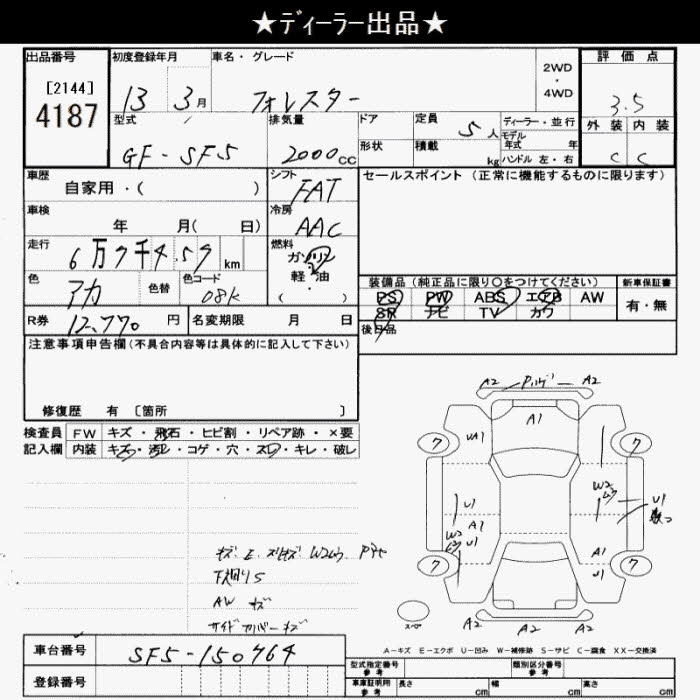 ★ディーラー出品★
出品番号
[2144]
4187
初度登録年月
13 3月
車名・グレード
フォレスター
2WD
・
4WD
評価点
3.5
外装 内装
C C
型式
GF-SF5
排気量
2000cc
ドア
形状
定員
5人
積載
kg
ディーラー・並行
モデル年式 年
ハンドル 左・右
車歴
自家用・( )
シフト
FAT
セールスポイント (正常に機能するものに限ります)
車検
年 月( 日)
冷房
AAC
走行
6万7千4.59 km
燃料
ガソリン
軽・油
( ・ )
色
アカ
色替
色コード
08K
装備品 (純正品に限り〇をつけてください)
PS PW ABS エアB AW
SR ナビ TV カワ
新車保証書
有・無
R券
12,770 円
名変期限 月 日
後日品
注意事項申告欄(不具合内容等は具体的に記入して下さい)
修復歴 有 〔箇所 〕
検査員
記入欄
FW キズ・飛石・ヒビ割・リペア跡・×要
内装 キズ・汚レ・コゲ・穴・スレ・キレ・破レ
下廻りS
AW キズ
サイドカバーキズ
A2 A2
A1
UA1
ワ ワ
W2
U1 U1
A1
W2
U1
A1
U1
ワ ワ
A2 A2 A2
スペア
A-キズ E-エクボ U-凹み W-補修跡 S-サビ C-腐食 XX-交換済
車台番号
SF5-150464
登録番号
型式指定番号
参考
類別区分番号
参考
車庫証明用
参考
長さ cm
幅 cm
高さ cm